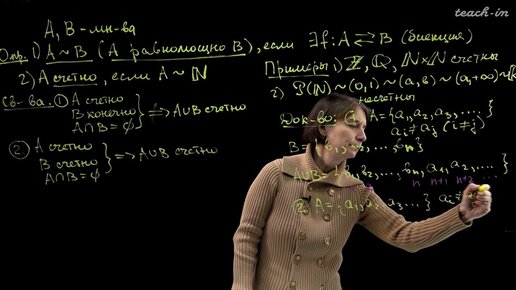 teach-in
A, B - мн-ва
Опр. 1) A ~ B (A равномощно B), если ∃ f: A ⇄ B (биекция)
2) A счетно, если A ~ ℕ
Св-ва. ① A счетно
B конечно
A∩B = ∅
⟹ A∪B счетно
② A счетно
B счетно
A∩B = ∅
⟹ A∪B счетно
Примеры 1) ℤ, ℚ, ℕ×ℕ счетны
2) P(ℕ) ~ (0,1) ~ (a,b) ~ (a,+∞) ~
несчетны
Док-во: A = {a₁, a₂, a₃, ...}
aᵢ ≠ aⱼ (i ≠ j)
B = {b₁, ... bₙ}
A∪B = {b₁, b₂, ..., bₙ, a₁, a₂, ... }
n n+1 n+2
② A = {a₁, a₂, a₃, ...} aᵢ ≠